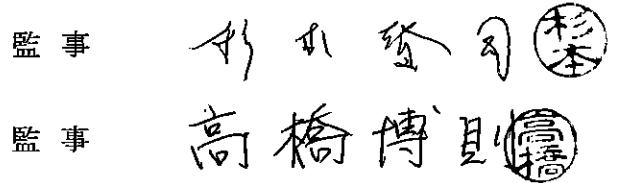 監事 杉本登司 杉本
監事 高橋博則 高橋